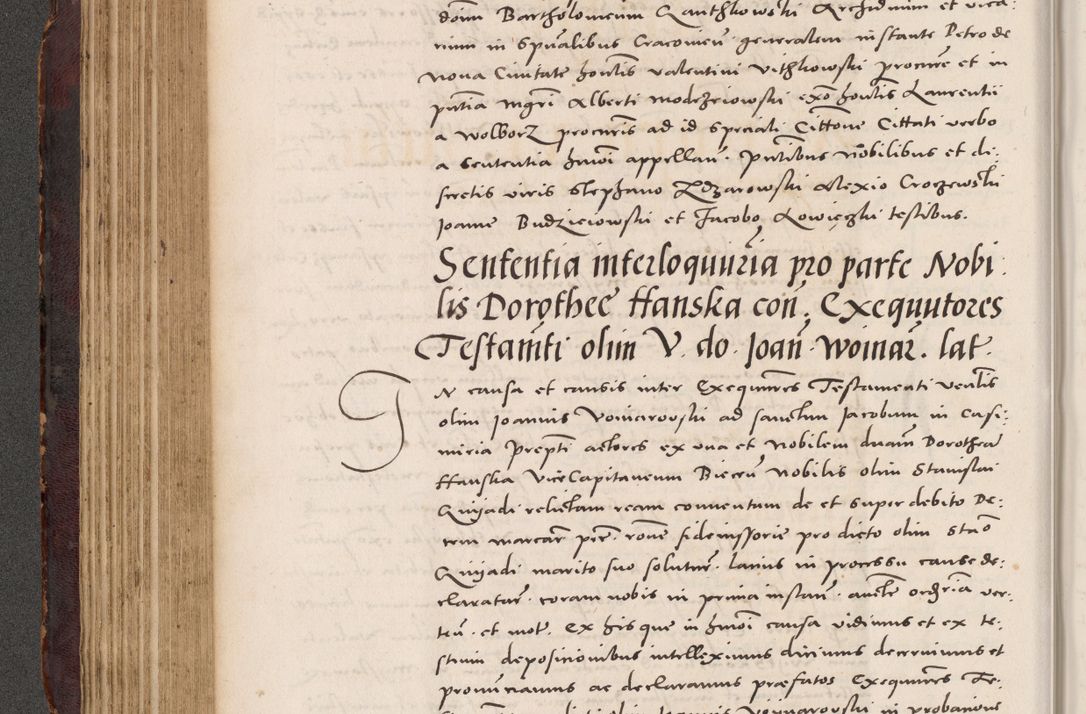 domini Bartholomeum Ganthkowski Archidium et vica:
rium in Spualibus Cracovien generalem instante Petro de
Nova Civitate honlis valentini Vithkowski procure et in
pntia mgri Alberti Modrzeiowski exo honlis Laurentii
a Wolborz procuris ad id speciali Cittone Cittati verbo
a sententia hmoi appellan. Pntibus nobilibus et di:
scretis viris Stephano Zdzarowski Alexio Croczewski
Joanne Budzieiowski et Jacobo Lowieczki testibus.
Sententia interloquuria pro parte Nobi
lis Dorothee Hanska con. Exequutores
Testamti olim V. do. Joan. Woinar. lat.
IN causa et causis inter Exequutores Testamenti venlis
olim Joannis Voinarovski ad sanctum Jacobum in Casi:
miria Prepti actores ex una et Nobilem dnam Dorothea
Hanska ViceCapitaneum Biecen Nobilis olim Stanislai
Quijadi relictam ream conventam de et super debito De:
cem marcar per rone fideiussorie pro dicto olim Stao
Quijadi marito suo solutur. latius in processu cause de:
claratar. coram nobis in prima instan. auctte ordria ver:
ten. et mot. Ex his que in hmoi causa vidimus et ex te:
stium depositionibus intelleximus dicimus decernimus et
pronunciamus ac declaramus praefatos Exequutores Te:
Joannis Voinarovski in probatione